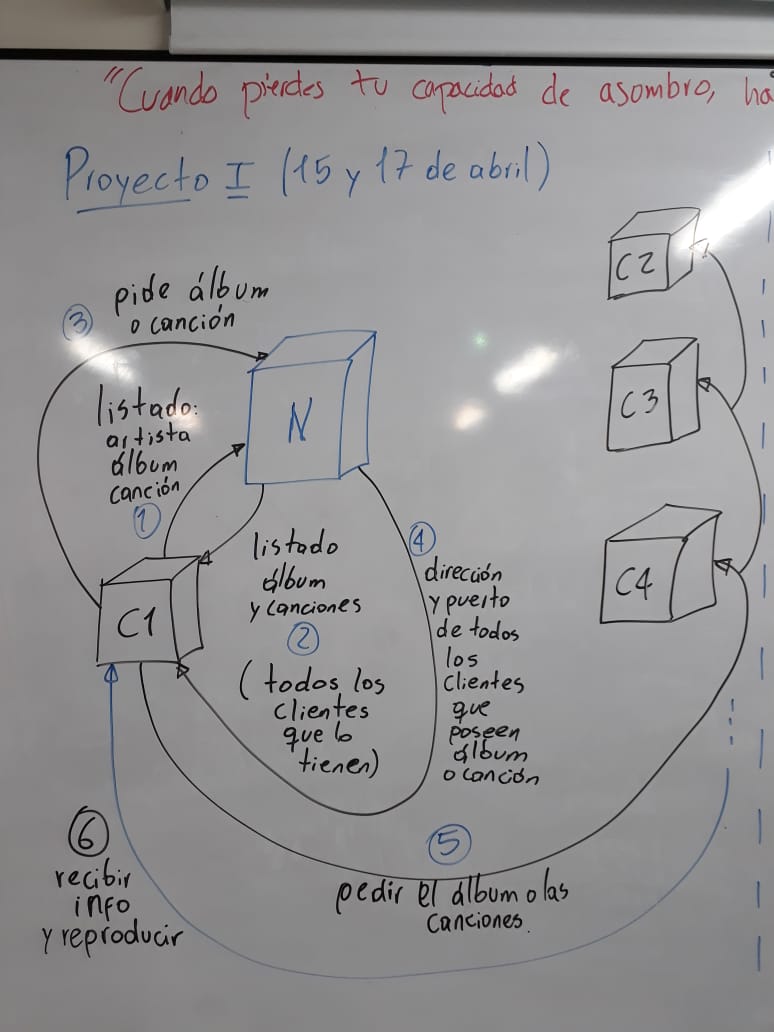 "Cuando pierdes tu capacidad de asombro, ha
Proyecto I (15 y 17 de abril)
③ pide álbum
o canción
listado:
artista
álbum
canción
①
N
C1
listado
álbum
y canciones
②
(todos los
clientes
que lo
tienen)
④
dirección
y puerto
de todos
los
clientes
que
poseen
álbum
o canción
C2
C3
C4
⑤
pedir el álbum o las
canciones.
⑥
recibir
info
y reproducir